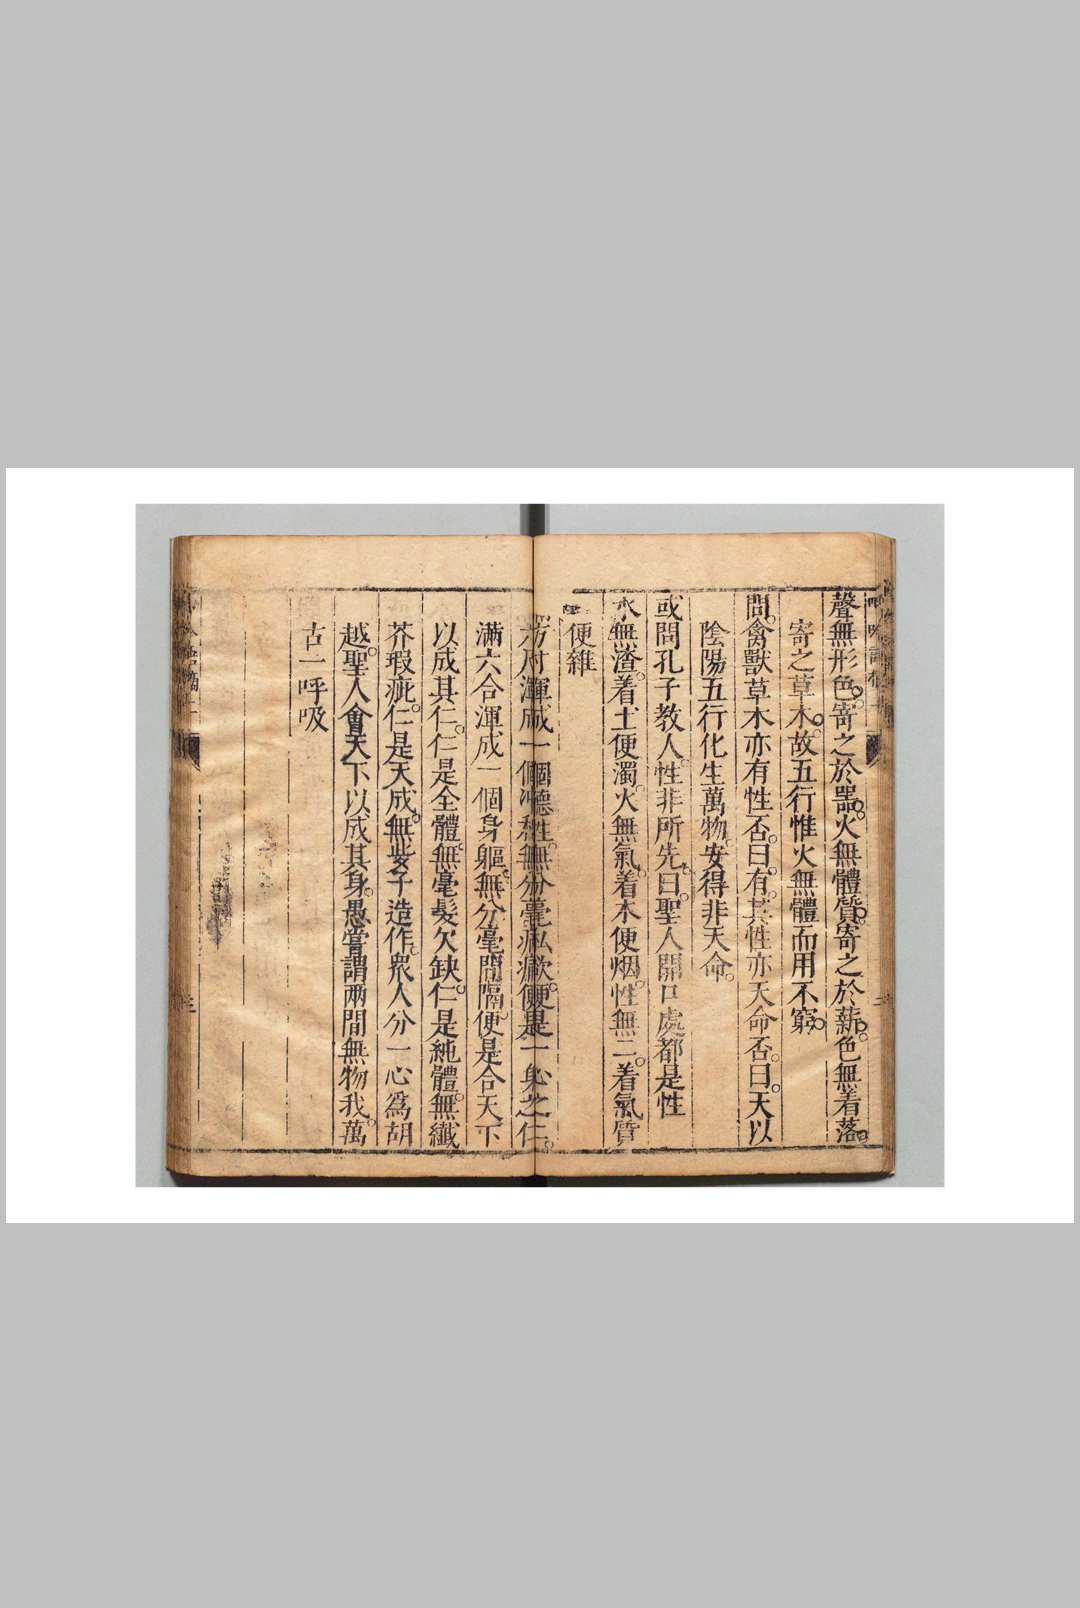 聲無形色。寄之於噐。火無體質。寄之於薪。色無着落。
寄之草木。故五行惟火無體而用不窮。
問。禽獸草木亦有性否。曰。有。其性亦天命否。曰。天以
陰陽五行化生萬物。安得非天命。
或問孔子教人。性非所先。曰。聖人開口處都是性
水無渣。着土便濁。火無氣。着木便烟。性無二。着氣質
便雜
滿六合渾成一個身軀。無分毫間隔。便是合天下
以成其仁。仁是全體。無毫髮欠缺。仁是純體。無纖
芥瑕疵。仁是天成。無些子造作。衆人分一心爲胡
越。聖人會天下以成其身。愚嘗謂兩間無物我。萬
古一呼吸